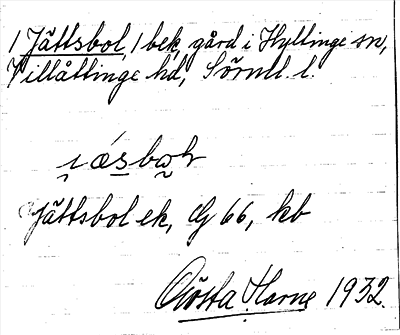 1 Jättsbol, 1 bek, gård i Hyltinge sn,
Villåttinge hd, Sörml. l.
Jättsbol ek, dg 66, kb
Gösta Harne 1932.